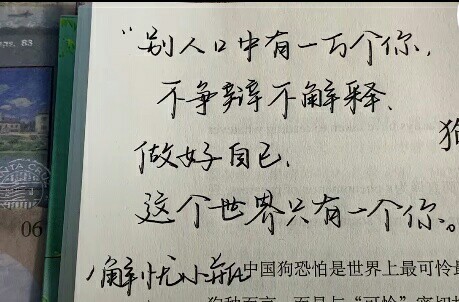 "别人口中有一万个你,
不争辩不解释、
做好自己,
这个世界只有一个你。
解忧小
中国狗恐怕是世界上最可怜
06
83